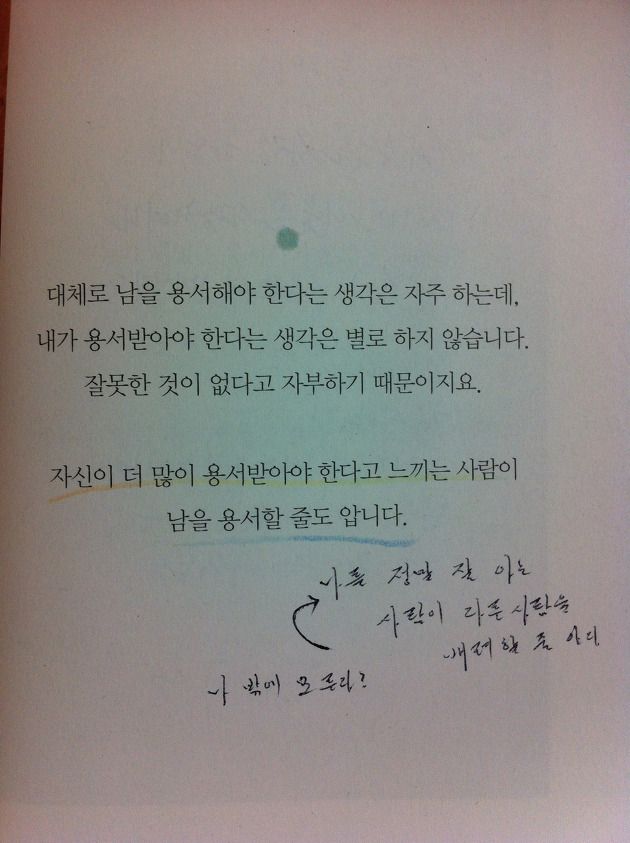 대체로 남을 용서해야 한다는 생각은 자주 하는데,
내가 용서받아야 한다는 생각은 별로 하지 않습니다.
잘못한 것이 없다고 자부하기 때문이지요.
자신이 더 많이 용서받아야 한다고 느끼는 사람이
남을 용서할 줄도 압니다.
나를 정말 잘 아는
사람이 다른 사람을
배려할 줄 안다
나 밖에 모른다?